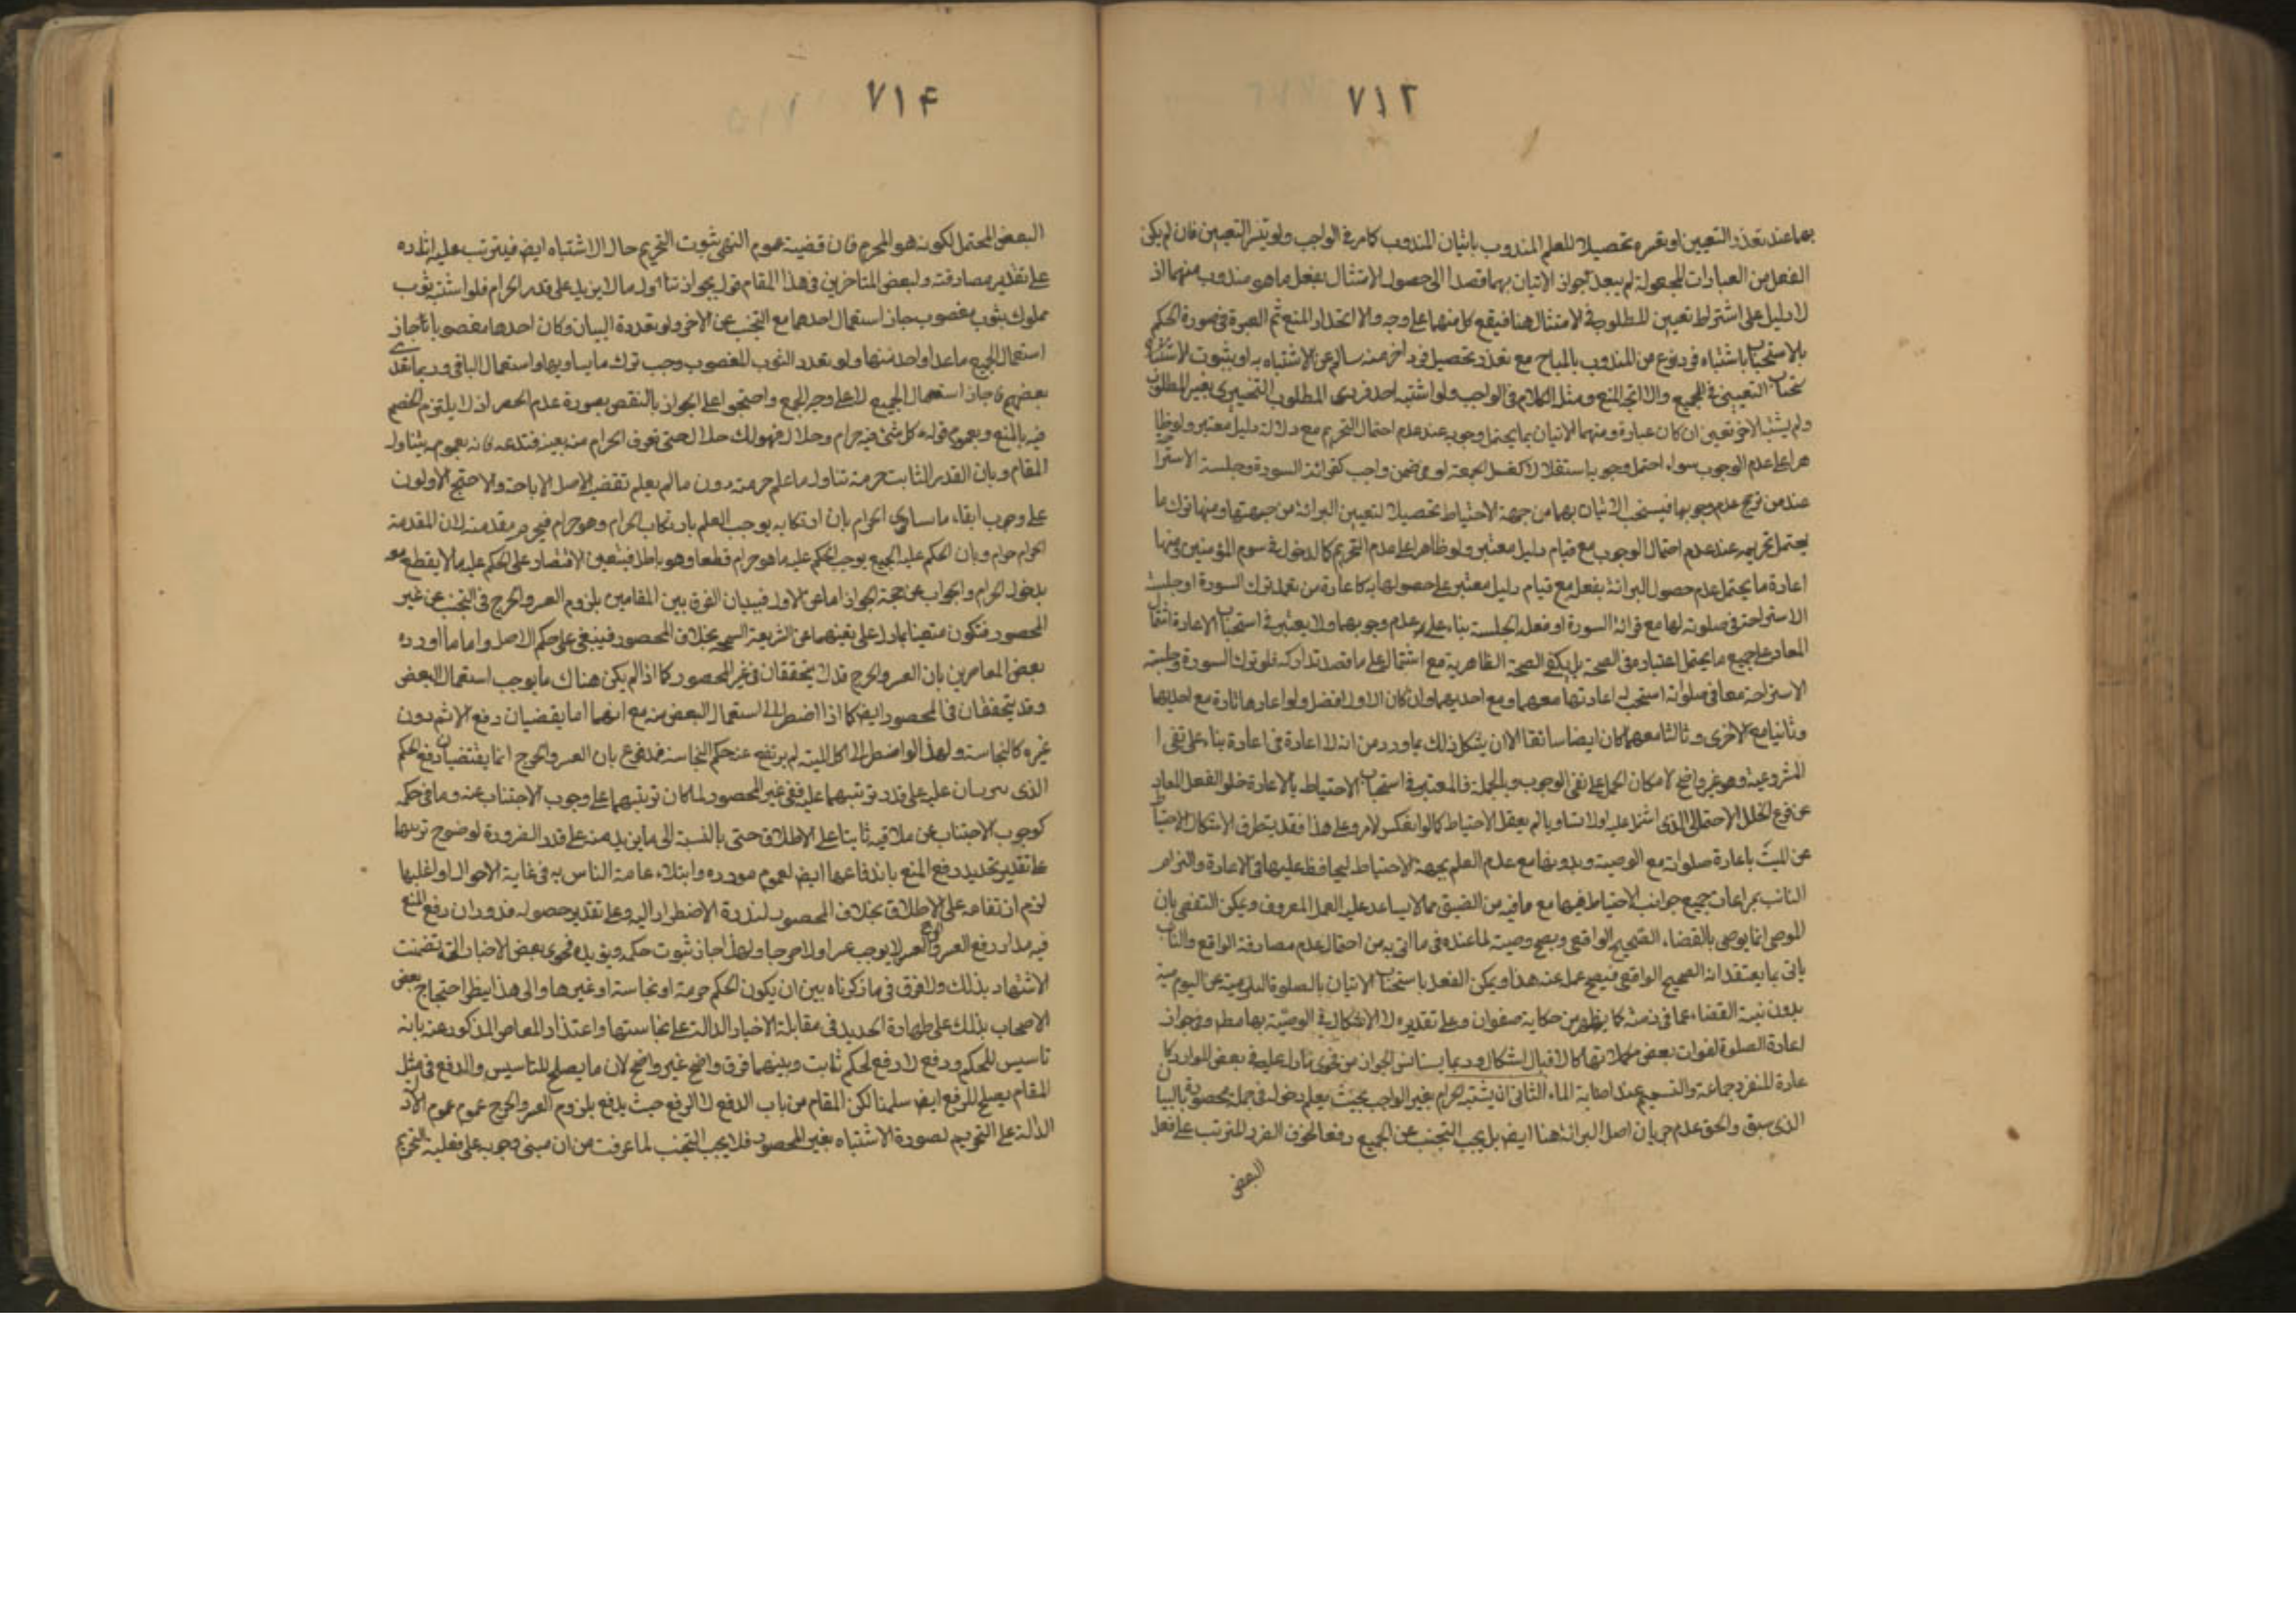 ٧١٢
بهما عند تعذر التعيين او تعسره تحصيلا للعلم المندوب باتيان المندوب كما مر في الواجب ولو تيسر التعيين فان لم يكن
الفعل من العبارات المجعولة لم يبعد جواز الاتيان بهما قصدا الى حصول الامتثال بفعل ما هو مندوب منهما اذ
لا دليل على اشتراط تعيين المطلوب في الامتثال هنا فيقع كل منهما على وجه والا اتحد المنع ثم العبرة في صورة الحكم
بالاستحباب باشتباه فرد نوع من المندوب بالمباح مع تعذر تحصيل فرد اخر منه سالم عن الاشتباه به او بثبوت
التعيينى في الجميع والا اتجه المنع ومثل الكلام في الواجب ولو اشتبه احد فردى المطلوب التخييرى بغير المطلوب
ولم يشتبه الاخر تعين ان كان عبادة ومنهما الاتيان بما يحتمل وجوبه عند عدم احتمال التحريم مع دلالة دليل معتبر ولو ظا
هرا على عدم الوجوب سواء احتمل وجوبه استقلالا كغسل الجمعة او في ضمن واجب كقرائة السورة وجلسة الاسترا
عند من يرجح عدم وجوبها فيستحب الاتيان بهما من جهة الاحتياط تحصيلا لتعيين البرائة من جهتها ومنها ترك ما
يحتمل تحريمه عند عدم احتمال الوجوب مع قيام دليل معتبر ولو ظاهرا على عدم التحريم كالدخول في سوم المؤمنين ومنها
اعادة ما يحتمل عدم حصول البرائة بفعله مع قيام دليل معتبر على حصولها به كاعادة من تعمد ترك السورة او جلسة
الاستراحة في صلوته لها مع قرائة السورة او فعل الجلسة بناء على عدم وجوبهما ولا يعتبر في استحباب الاعادة اشتمال
المعاد على جميع ما يحتمل اعتباره في الصحة بل يكفى الصحة الظاهرية مع اشتماله على ما قصد تداركه فلو ترك السورة وجلسة
الاستراحة معا في صلواته استحب له اعادتها معهما ومع احديهما وان كان الاول افضل ولو اعادها تارة مع احديهما
وثانيا مع الاخرى وثالثا معهما كان ايضا سائغا الا ان يشكل ذلك بما ورد من انه لا اعادة في اعادة بناء على نفى ا
المشروعية وهو غير واضح لامكان الحمل على نفى الوجوب وبالجملة فالمعتبر في استحباب الاحتياط بالاعادة خلو الفعل المعاد
عن نوع الخلل الاحتمالى الذى اشتمل عليه اولا تساويا لم يعقل الاحتياط كما لو انعكس الامر وعلى هذا فقد يتطرق الاشكال الاحتياط
عن الميت باعادة صلواته مع الوصية وبدونها مع عدم العلم بجهة الاحتياط ليحافظ عليها في الاعادة والتزام
النائب بمراعات جميع جوانب الاحتياط فيها مع ما فيه من الضيق مما لا يساعد عليه العمل المعروف ويمكن التفصى بان
الموصى انما يوصى بالقضاء الصحيح الواقعى ويصح وصيته لما عنده في ما اتى به من احتمال عدم مصادفة الواقع والنائب
ياتى بما يعتقد انه الصحيح الواقعى فيصح عمله عنه هذا ويمكن الفعل باستحباب الاتيان بالصلوة اليومية عن اليومية
بدون نية القضاء عما في ذمته كما يظهر من حكاية صفوان وعلى تقديره لا اشكال في الوصية بها مطلقا وفي جواز
اعادة الصلوة لفوات بعض مكملاتها كالاقبال اشكال وربما يستانس الجواز من فحوى ما دل عليه في بعض الموارد كا
عادة المنفرد جماعة والتسمم عند اصابة الماء الثانى ان يشتبه الحرام بغير الواجب بحيث يعلم دخوله في جملة محصورة بالبيان
الذى سبق والحق عدم جريان اصل البرائة هنا ايضا بل يجب التجنب عن الجميع دفعا لخوف الضرر المترتب على فعل
البعض
٧١٤
البعض المحتمل لكونه هو المحرم فان قضية عموم النهى ثبوت التحريم حال الاشتباه ايضا فيترتب عليه اثاره
على تقدير مصادفته ولبعض المتاخرين في هذا المقام قول بجواز تناول ما لا يزيد على قدر الحرام فلو اشتبه ثوب
مملوك بثوب مغصوب جاز استعمال احدهما مع التجنب عن الاخر ولو تعددت الثياب وكان احدها مغصوبا جاز
استعمال الجميع ما عدا واحد منها ولو تعدد الثوب المغصوب وجب ترك ما يساويها واستعمال الباقى وربما تعدى
بعضهم فاجاز استعمال الجميع لا على وجه الجمع واحتجوا على الجواز بالنقض بصورة عدم الحصر اذ لا يلتزم الخصم
فيه بالمنع وبعموم قوله كل شئ فيه حرام وحلال فهو لك حلال حتى تعرف الحرام منه بعينه فتدعه فانه بعمومه يتناول
المقام وبان القدر الثابت حرمة تناول ما علم حرمته دون ما لم يعلم تقضيه لاصل الاباحة والاحتج الاولون
على وجوب ابقاء ما ساوى الحرام بان ارتكابه يوجب العلم بارتكاب الحرام وهو حرام فيحرم مقدمته لان المقدمة
الحرام حرام وبان الحكم عليه الجميع يوجب الحكم عليه ما هو حرام قطعا وهو باطل فيتعين الاقتصار على الحكم عليه ما لا يقطع معه
بدخول الحرام والجواب عن حجة الجواز اما عن الاول فببيان الفرق بين المقامين بلزوم العسر والحرج في التجنب عن غير
المحصور فتكون متعينا بما دل على نفيهما عن الشريعة السمحة بخلاف المحصور فيبقى على حكم الاصل واما ما اورده
بعض المعاصرين بان العسر والحرج قد لا يتحققان في غير المحصور كما اذا لم يكن هناك ما يوجب استعمال البعض
وقد يتحققان في المحصور ايضا كما اذا اضطر الى استعمال البعض منه مع انهما انما يقضيان دفع الاثم دون
غيره كالنجاسة ولهذا لو اضطر الى اكل الميتة لم يرتفع عنه حكم النجاسة فمدفوع بان العسر والحرج انما يقتضيان رفع الحكم
الذى يترتبان عليه على قدر ترتبهما عليه ففى غير المحصور لما كان ترتبهما على وجوب الاجتناب عنه وما في حكمه
كوجوب الاجتناب عن ملاقيه ثابتا على الاطلاق حتى بالنسبة الى ما يزيد منه على قدر الضرورة لوضوح ترتبهما
على تقدير تحديد رفع المنع باندفاعها ايضا لعموم مورده وابتلاء عامة الناس به في غاية الاحوال او اغلبها
لزم ارتفاعه على الاطلاق بخلاف المحصور لندرة الاضطرار اليه وعلى تقدير حصوله فدوران رفع المنع
فيه مدار رفع العسر والحرج لا يوجب عسرا ولا حرجا ولهذا جاز ثبوت حكمه ويؤيده فحوى بعض الاخبار التى تضمنت
الاشتهاد بذلك ولا فرق في ما ذكرناه بين ان يكون الحكم حرمة او نجاسة او غيرها والى هذا ينظر احتجاج بعض
الاصحاب بذلك على طهارة الحديد في مقابلة الاخبار الدالة على نجاستها واعتذار المعاصر المذكور عنه بانه
تاسيس للحكم ودفع لا رفع لحكم ثابت وبينهما فرق واضح غير واضح لان ما يصلح للتاسيس والدفع في مثل
المقام يصلح للرفع ايضا سلمنا لكن المقام من باب الدفع لا الرفع حيث يدفع بلزوم العسر والحرج عموم الادلة
الدالة على التحريم لصورة الاشتباه بغير المحصور فلا يجب التجنب لما عرفت من ان مبنى وجوبه على فعلية التحريم